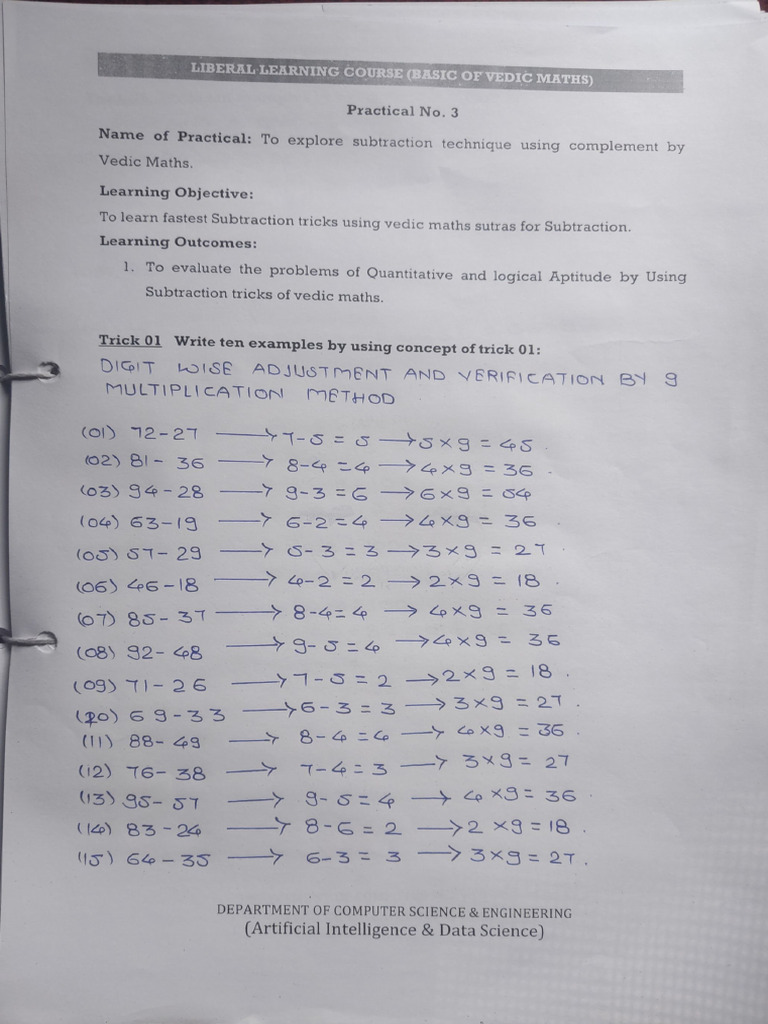 LIBERAL LEARNING COURSE (BASIC OF VEDIC MATHS)
Practical No. 3
Name of Practical: To explore subtraction technique using complement by
Vedic Maths.
Learning Objective:
To learn fastest Subtraction tricks using vedic maths sutras for Subtraction.
Learning Outcomes:
1. To evaluate the problems of Quantitative and logical Aptitude by Using
Subtraction tricks of vedic maths.
Trick 01 Write ten examples by using concept of trick 01:
DIGIT WISE ADJUSTMENT AND VERIFICATION BY 9
MULTIPLICATION METHOD
(01) 72-27 → 7-5 = 5 → 5×9 = 45
(02) 81-36 → 8-4 = 4 → 4×9 = 36
(03) 94-28 → 9-3 = 6 → 6×9 = 54
(04) 63-19 → 6-2 = 4 → 4×9 = 36
(05) 57-29 → 5-3 = 3 → 3×9 = 27
(06) 46-18 → 4-2 = 2 → 2×9 = 18
(07) 85-37 → 8-4 = 4 → 4×9 = 36
(08) 92-48 → 9-5 = 4 → 4×9 = 36
(09) 71-26 → 7-5 = 2 → 2×9 = 18
(10) 69-33 → 6-3 = 3 → 3×9 = 27
(11) 88-49 → 8-4 = 4 → 4×9 = 36
(12) 76-38 → 7-4 = 3 → 3×9 = 27
(13) 95-57 → 9-5 = 4 → 4×9 = 36
(14) 83-24 → 8-6 = 2 → 2×9 = 18
(15) 64-35 → 6-3 = 3 → 3×9 = 27
DEPARTMENT OF COMPUTER SCIENCE & ENGINEERING
(Artificial Intelligence & Data Science)